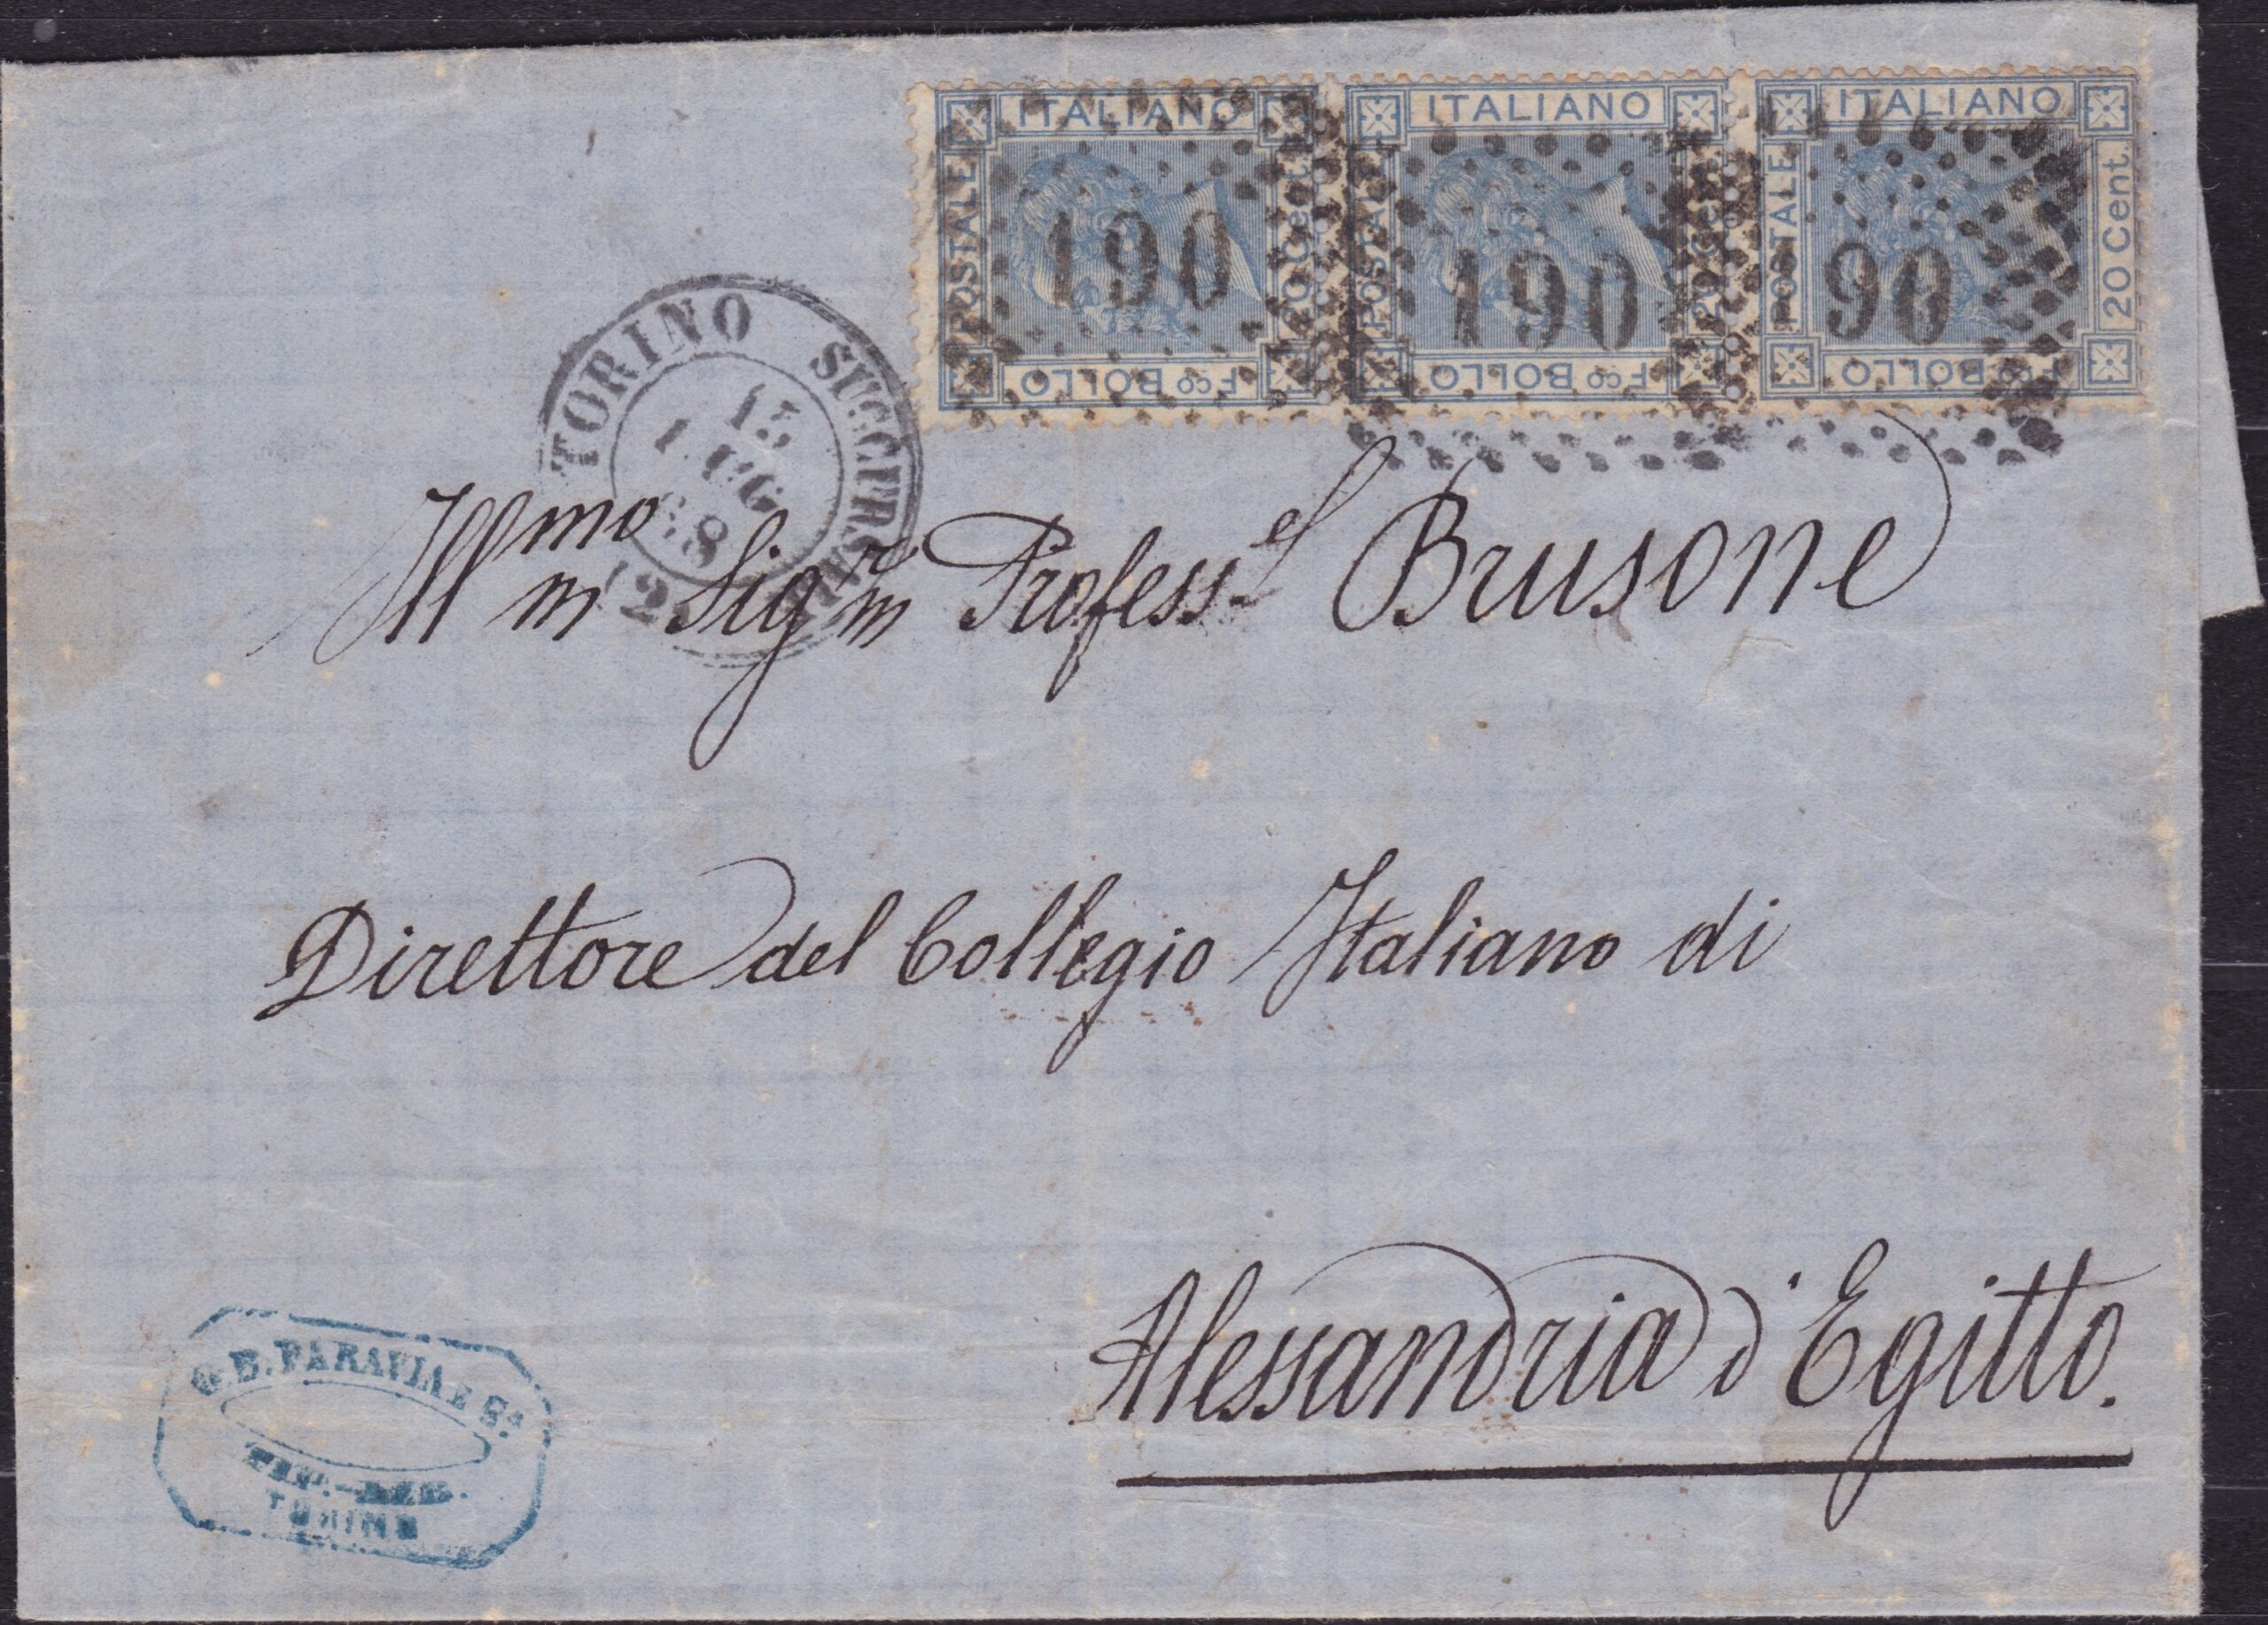 ITALIANO ITALIANO ITALIANO
POSTALE 20 Cent. POSTALE 20 Cent. POSTALE 20 Cent.
190 190 90
Fco BOLLO Fco BOLLO Fco BOLLO
TORINO SUCCURSALE
15
LUG
68
2
Illmo Sigr Profess.e Brusone
Direttore del Collegio Italiano di
Alessandria d'Egitto.
G.B. PARAVIA E Ca.
TIP.-LIB.
TORINO